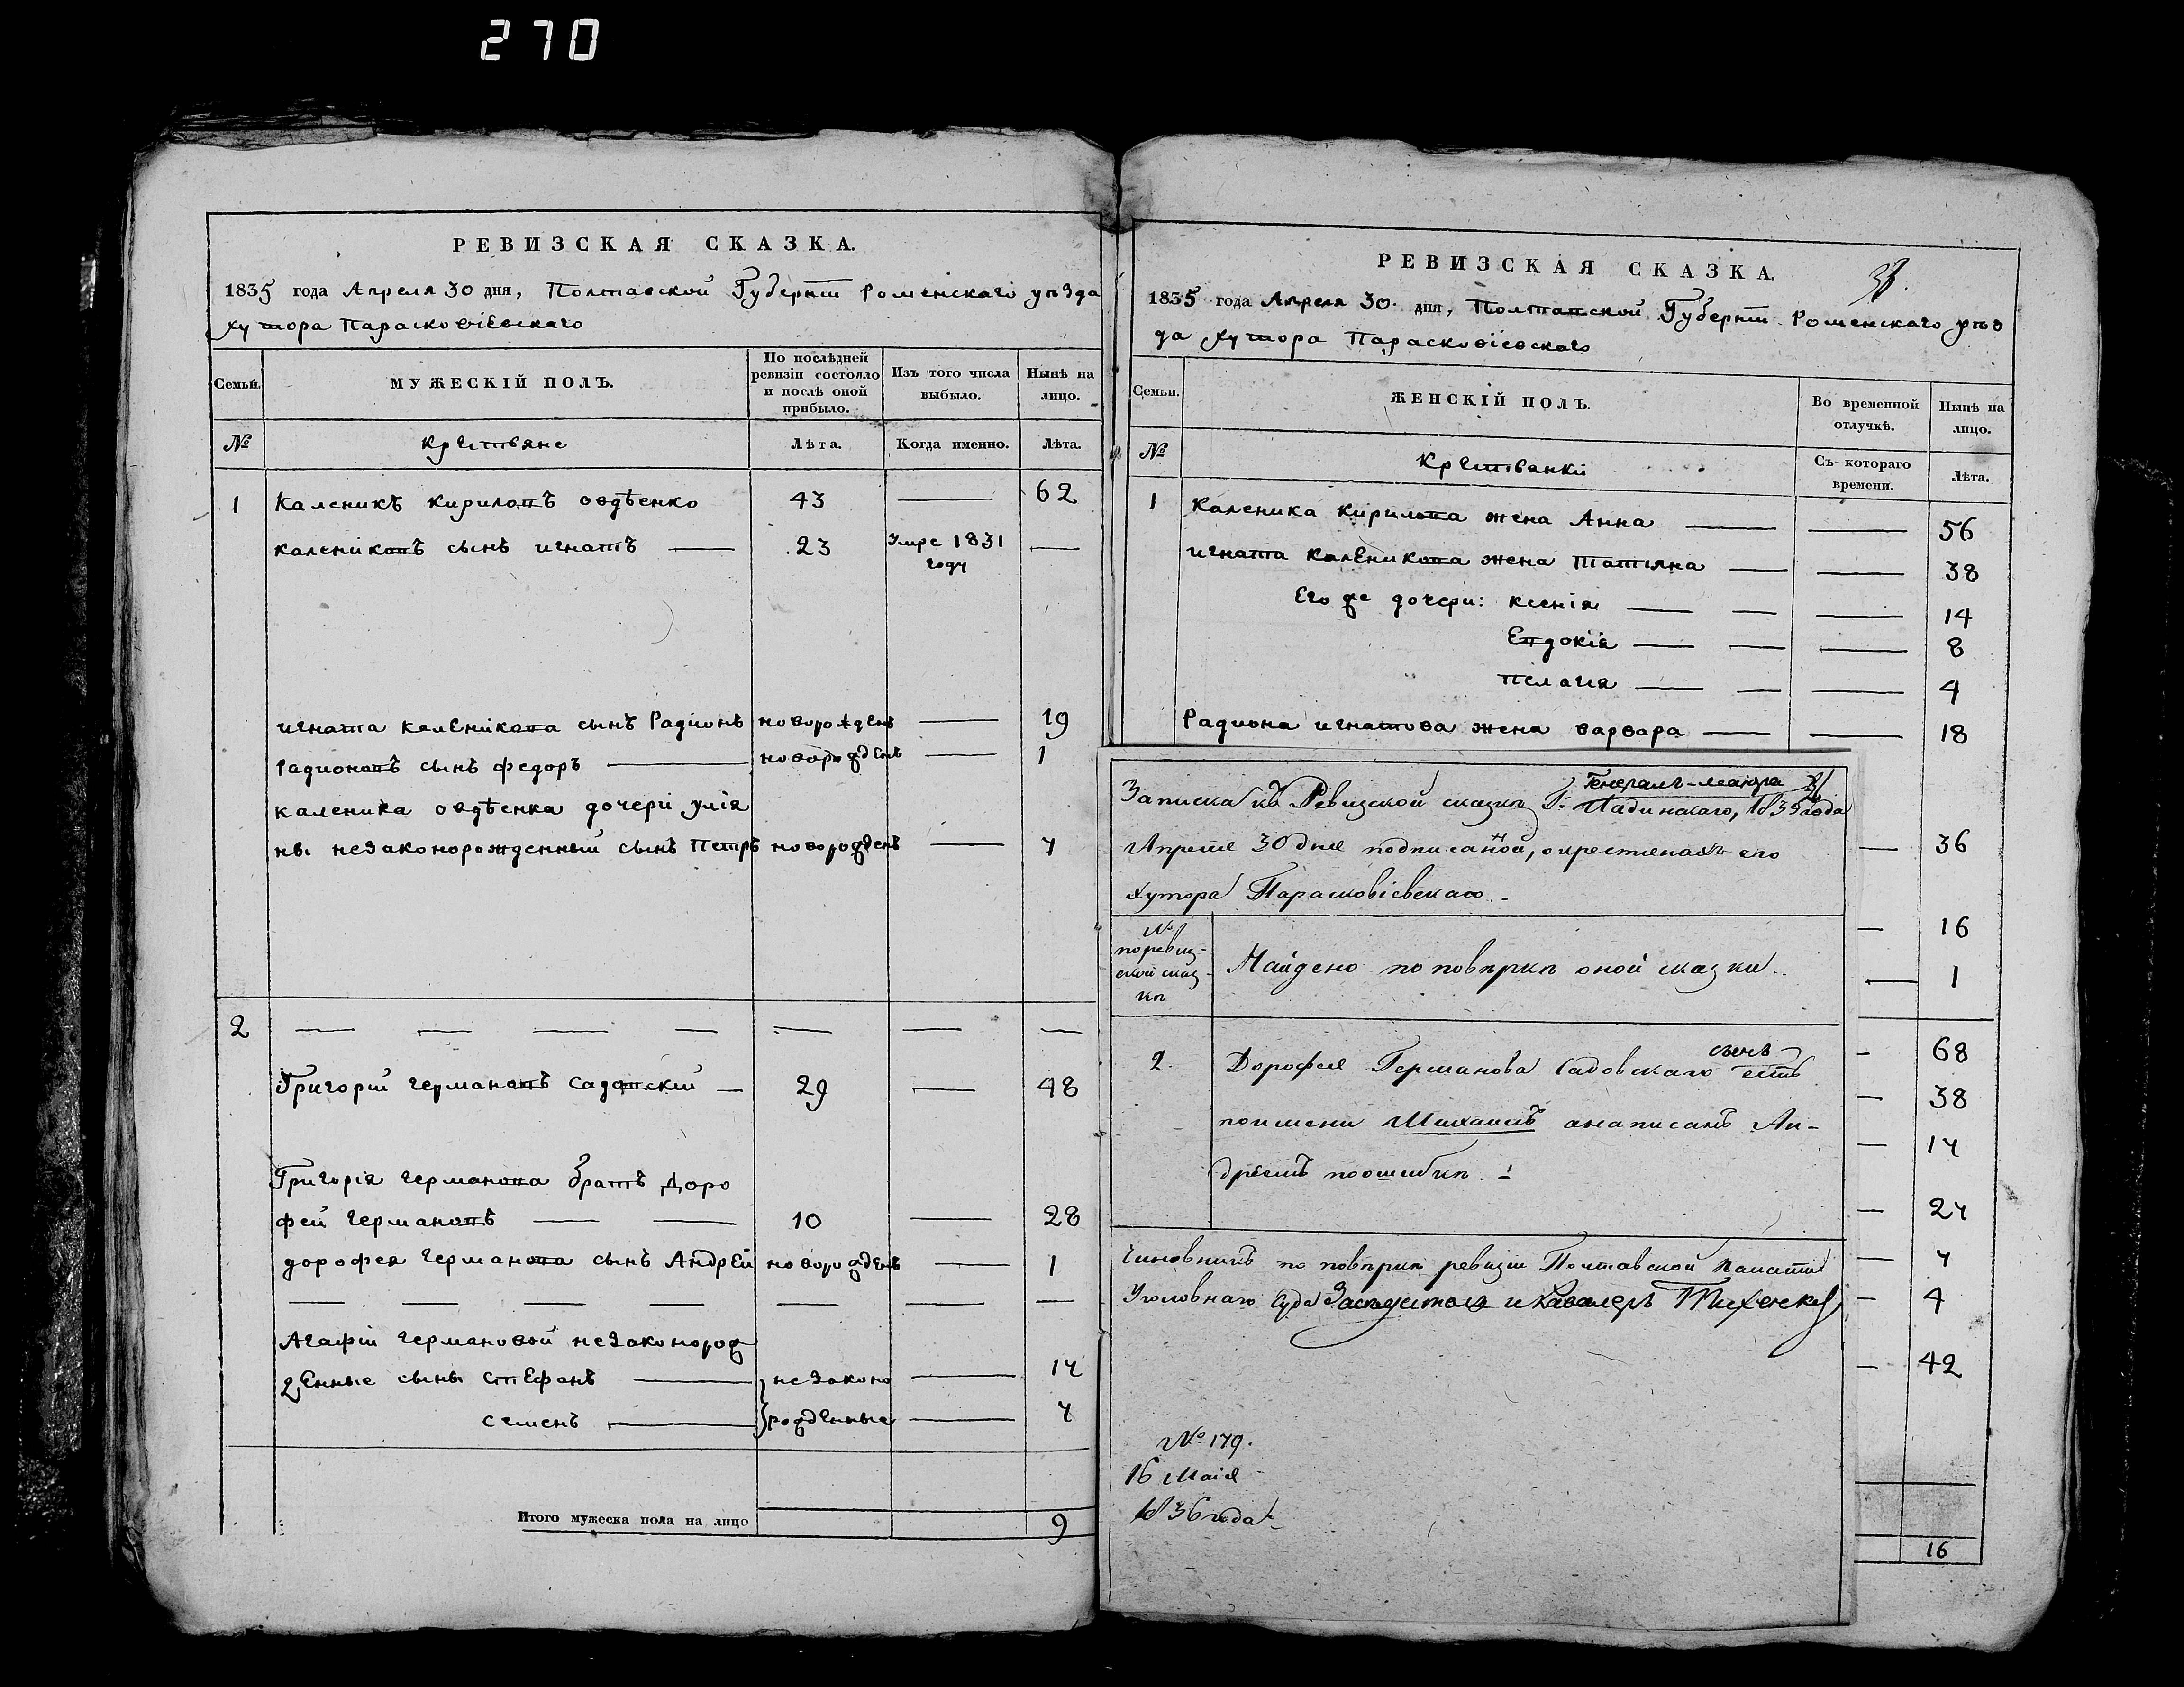 270
РЕВИЗСКАЯ СКАЗКА.
1835 года Апреля 30 дня, Полтавской Губерніи Роменскаго уѣзда
хутора Парасковіевскаго
Семьи.
МУЖЕСКІЙ ПОЛЪ.
По послѣдней ревизіи состояло и послѣ оной прибыло.
Изъ того числа выбыло.
Нынѣ на лицо.
№
Крестьяне
Лѣта.
Когда именно.
Лѣта.
1 Каленикъ Кириловъ Овдѣенко 43 — 62
Калениковъ сынъ Игнатъ — 23 Умре 1831 году —
Игната Каленикова сынъ Радионъ новорожденъ — 19
Радионовъ сынъ Федоръ — новорожденъ — 1
Каленика Овдѣенка дочери Улія
ны незаконорожденный сынъ Петръ новорожденъ — 7
2 — — — — — — —
Григорій Германовъ Садовскій — 29 — 48
Григорія Германова братъ Доро
фей Германовъ — — 10 — 28
Дорофея Германова сынъ Андрей новорожденъ — 1
— — — — — — —
Агафіи Германовой незаконорож
денные сыны Стефанъ — незаконо — 14
Семенъ — рожденные — 7
Итого мужеска пола на лицо 9
РЕВИЗСКАЯ СКАЗКА.
1835 года Апреля 30 дня, Полтавской Губерніи Роменскаго уѣз
да хутора Парасковіевскаго
Семьи.
ЖЕНСКІЙ ПОЛЪ.
Во временной отлучкѣ.
Нынѣ на лицо.
№
Крестьянки
Съ котораго времени.
Лѣта.
1 Каленика Кирилова жена Анна — — 56
Игната Каленикова жена Татіяна — — 38
Его же дочери: Ксенія — — — 14
Евдокія — — — 8
Пелагія — — — 4
Радиона Игнатова жена Варвара — — 18
— 36
— 16
— 1
— 68
— 38
— 14
— 24
— 7
— 4
— 42
16
Записка къ Ревизской сказкѣ Г: Генералъ-маіора Ладинскаго, 1835 года
Апреля 30 дня подписанной, о крестьянахъ его
хутора Парасковіевскаго.
№ по ревиз-
ской сказ-
кѣ
Найдено по повѣркѣ оной сказки.
2. Дорофея Германова Садовскаго сынъ есть
по имени Михаилъ а написанъ Ан-
дреемъ по ошибкѣ.
Чиновникъ по повѣркѣ ревизіи Полтавской Палаты
Уголовнаго Суда Заседатель и Кавалеръ
№ 179.
16 Маія
1836 года